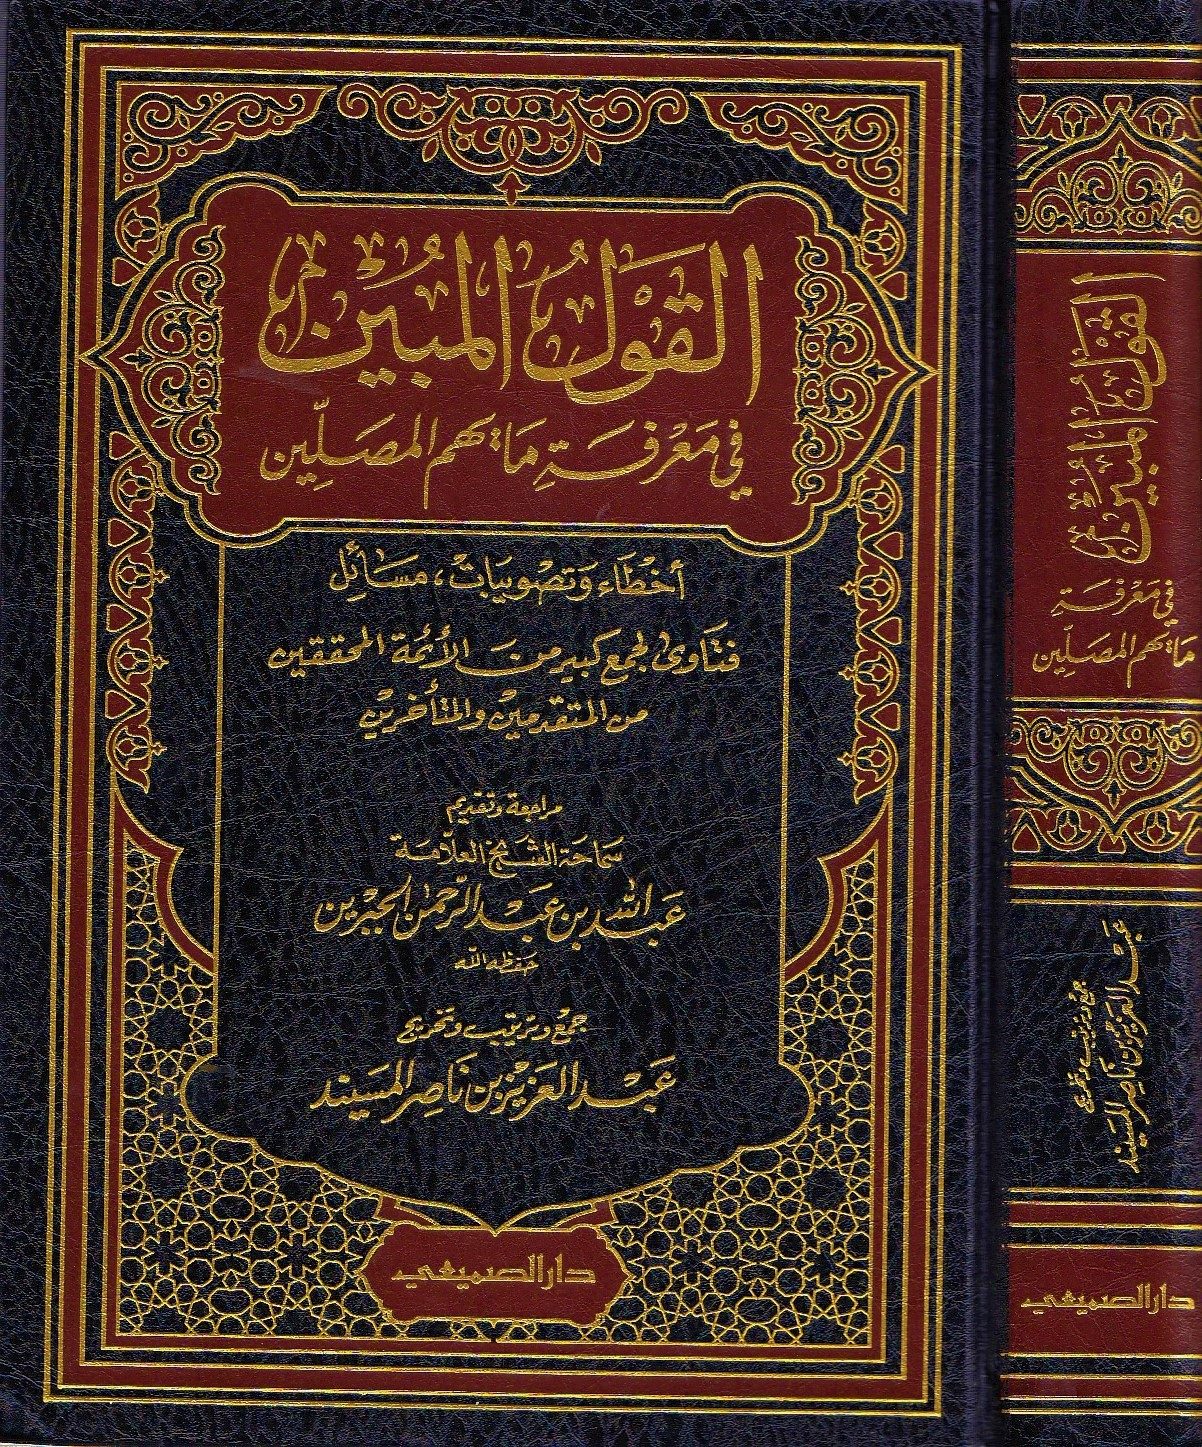 القَوْلُ المُبِيْن
في مَعْرفَةِ مَا يهم المصَلِّين
أخْطَاء وَتصْويبَاتْ، مسَائِل
فتَاوى لجمع كبير من الأئمة المحققين
من المتقدمين والمتأخرين
مراجعة وتقديم
سماحة الشيخ العلّامة
عَبد الله بن عَبْد الرّحمٰن الجبرين
حفظه الله
جمع وترتيب وتخريج
عَبْد العَزيز بن نَاصِر المسَيند
دار الصميعي
القَوْلُ المُبِيْن
في مَعْرفَةِ
مَا يهم المصَلِّين
جمع وترتيب وتخريج
عَبْد العَزيز بن نَاصِر المسَيند
دار الصميعي